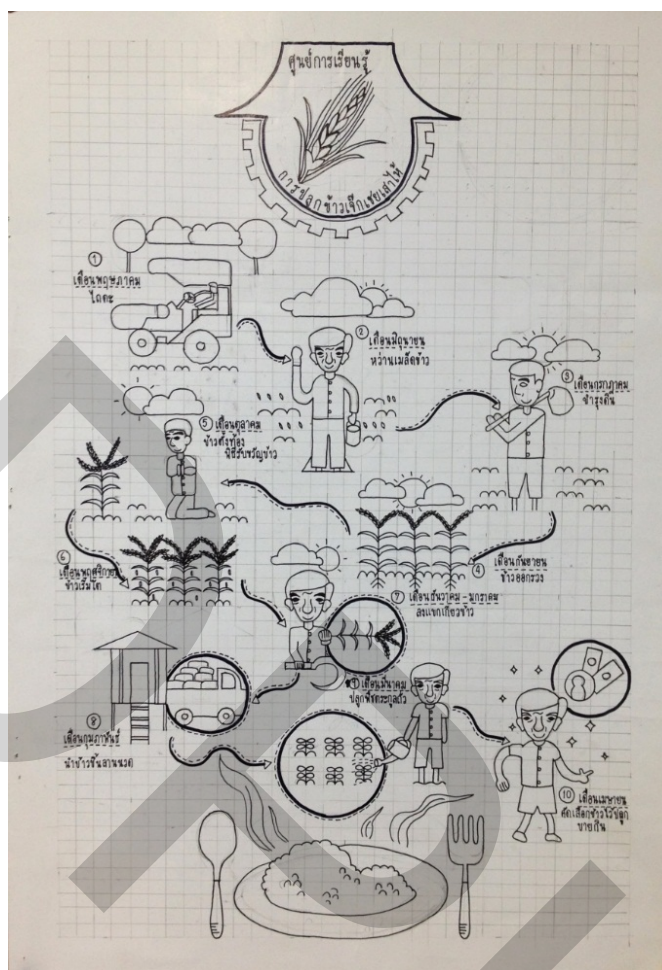 ศูนย์การเรียนรู้
การปลูกข้าวเจ๊กเชยเสาไห้
① เดือนพฤษภาคม
ไถดะ
② เดือนมิถุนายน
หว่านเมล็ดข้าว
③ เดือนกรกฎาคม
บำรุงดิน
④ เดือนกันยายน
ข้าวออกรวง
⑤ เดือนตุลาคม
ข้าวตั้งท้อง
พิธีรับขวัญข้าว
⑥ เดือนพฤศจิกายน
ข้าวเริ่มโต
⑦ เดือนธันวาคม - มกราคม
ลงแขกเกี่ยวข้าว
⑧
เดือนกุมภาพันธ์
นำข้าวขึ้นลานนวด
⑨ เดือนมีนาคม
ปลูกพืชตระกูลถั่ว
⑩ เดือนเมษายน
คัดเลือกข้าวไว้ปลูก
ขายกิน